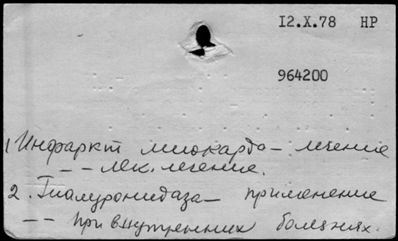 12.X.78 НР
964200
1 Инфаркт миокарда - лечение
- - лек. лечение.
2. Гиалуронидаза - применение
-- при внутренних болезнях.